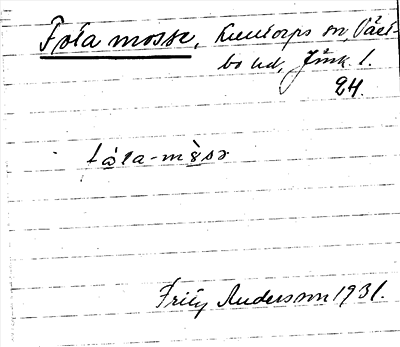 Fota mosse, Kuntorps sn, Väst-
bo hd, Jönk. l.
24.
fåta-mòsə
Fritz Andersson 1931.